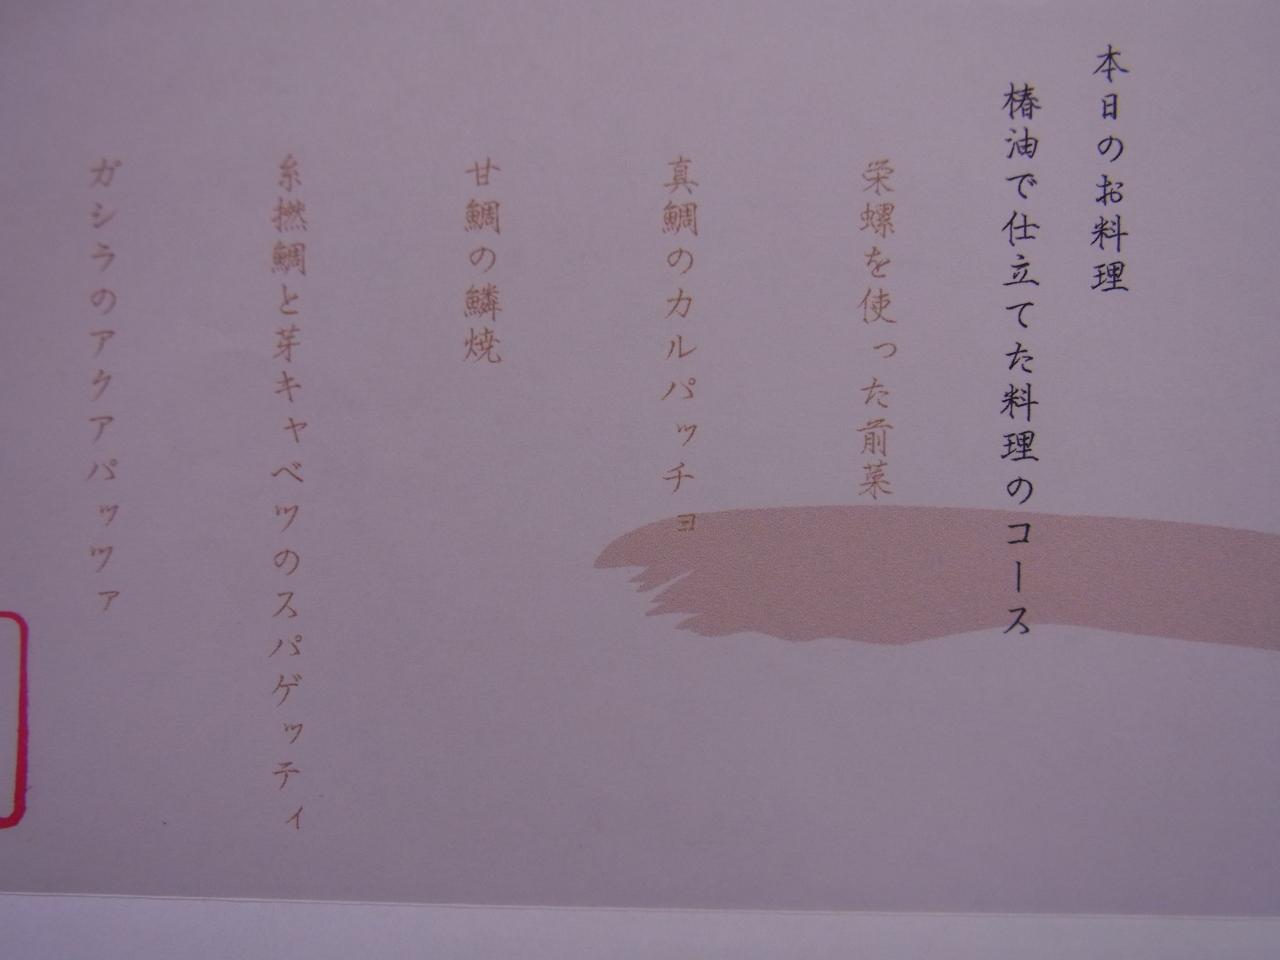 本日のお料理
椿油で仕立てた料理のコース
栄螺を使った前菜
真鯛のカルパッチョ
甘鯛の鱗焼
糸撚鯛と芽キャベツのスパゲッティ
ガシラのアクアパッツァ